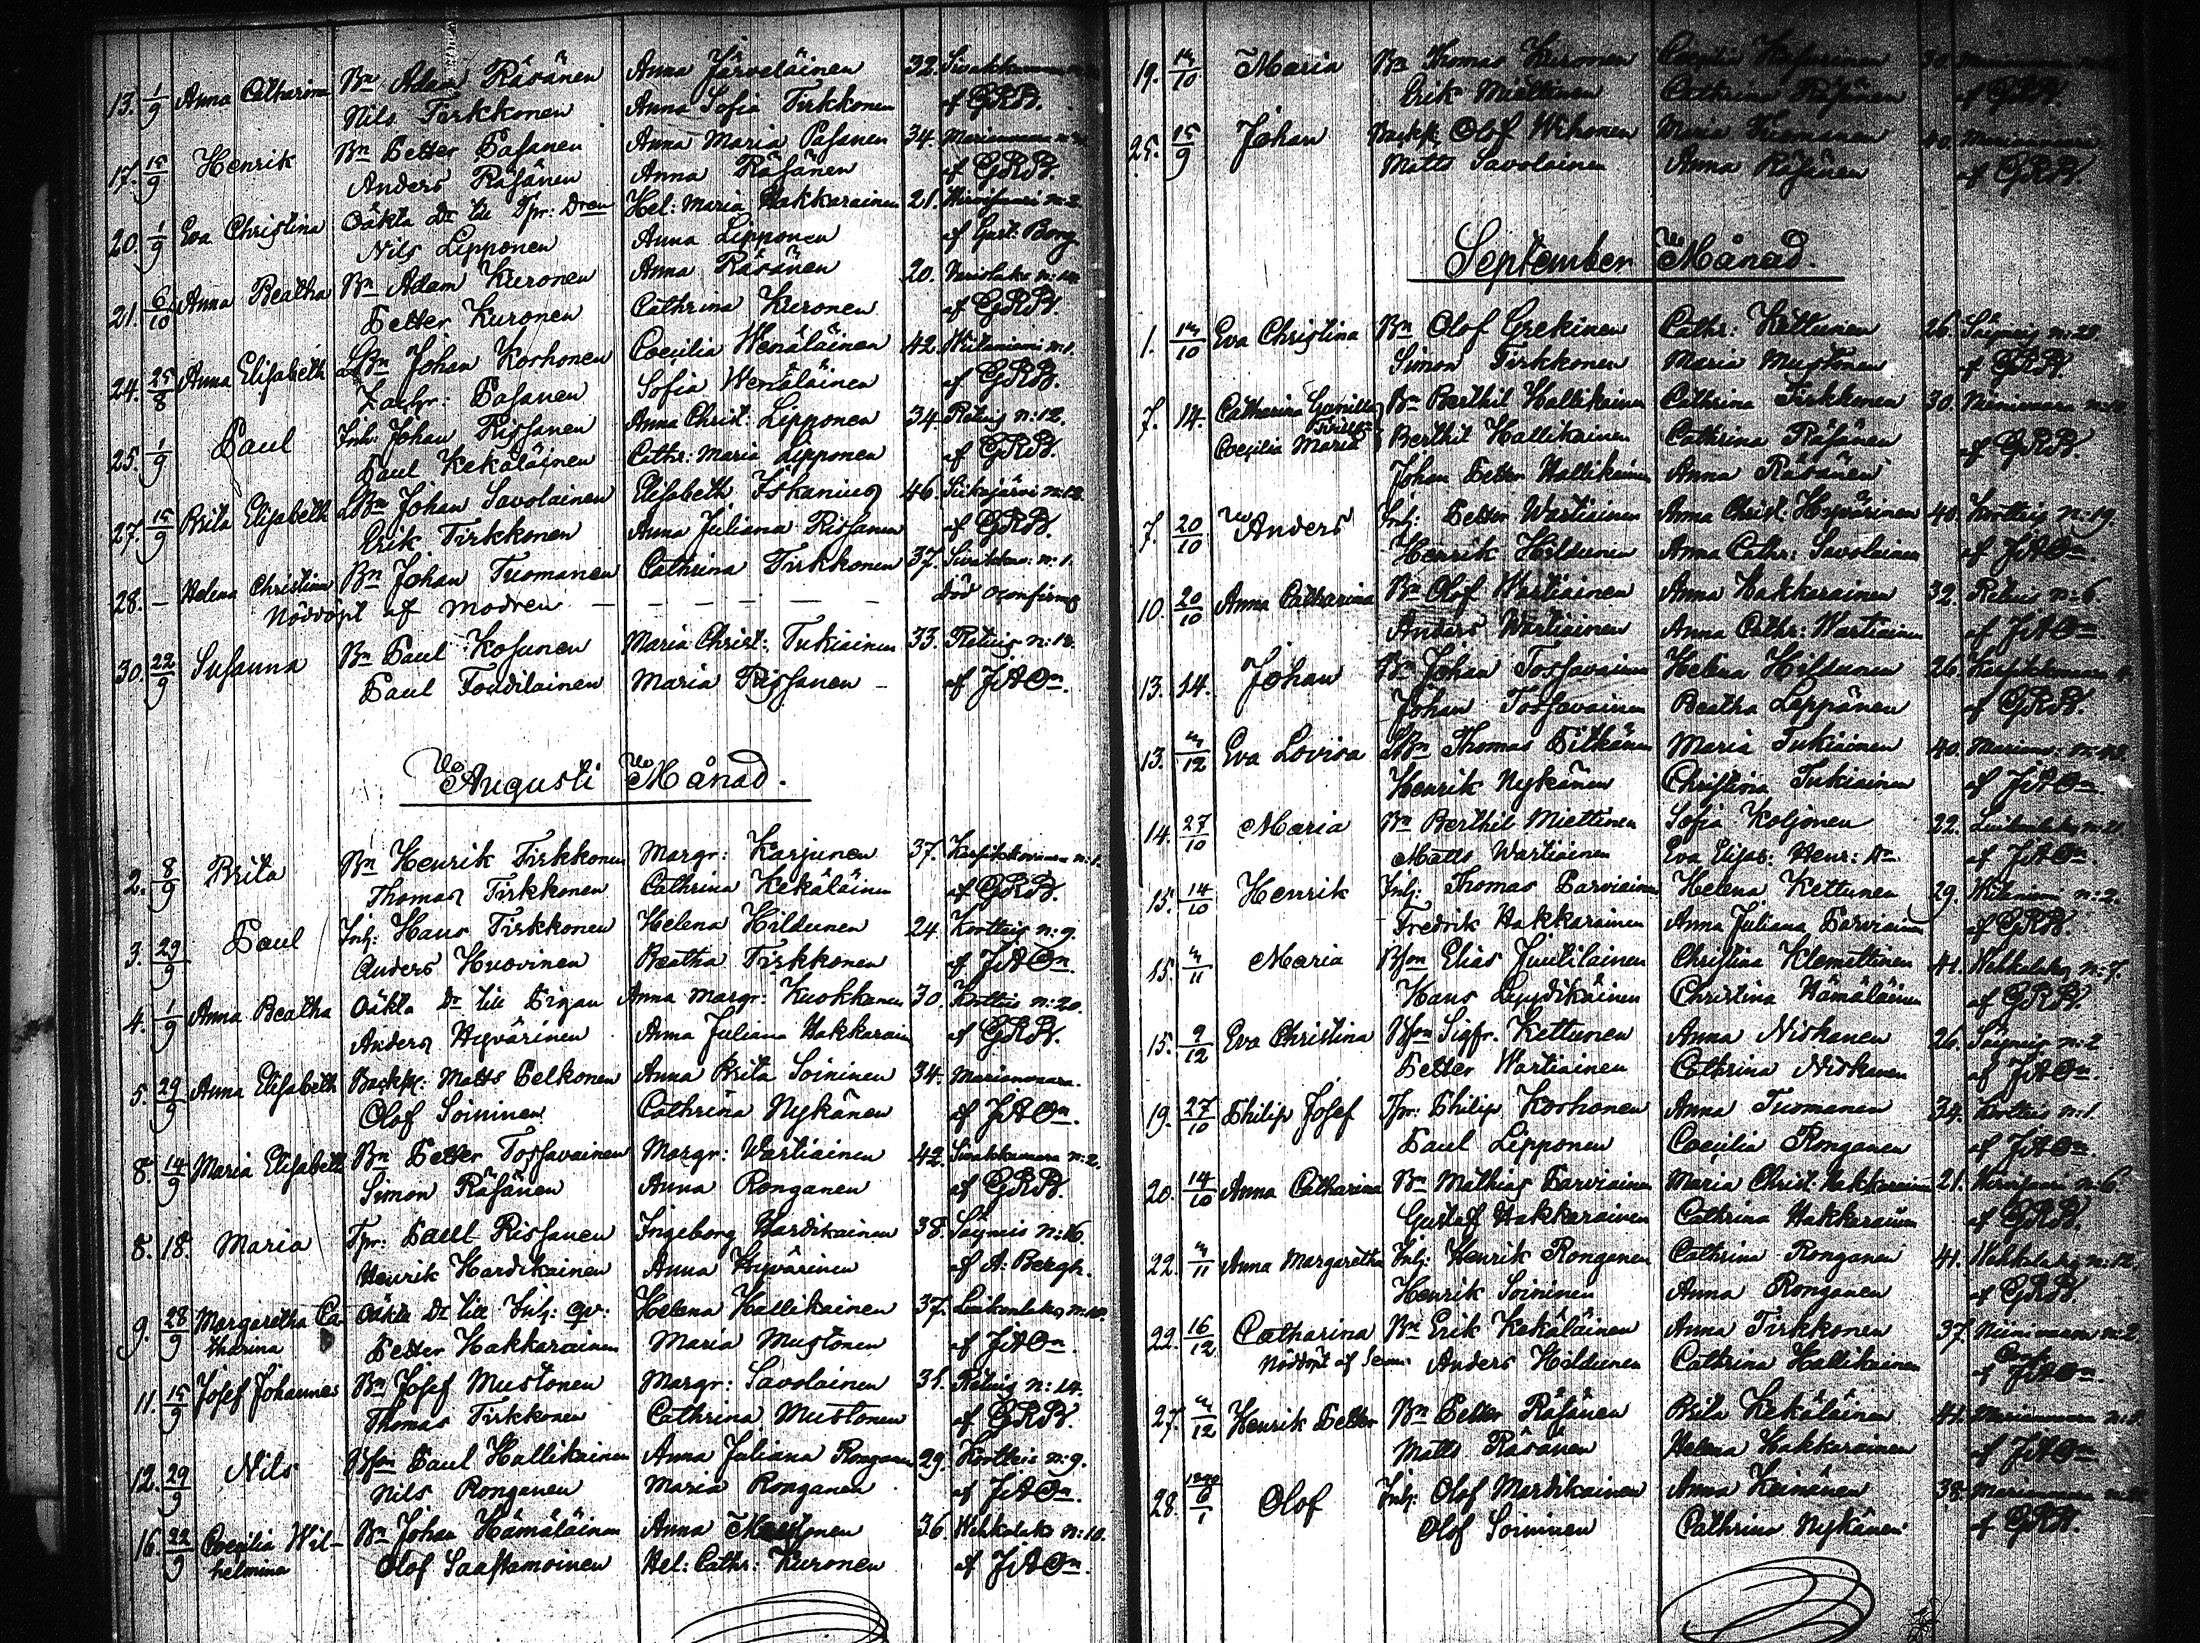 13. 1/9 Anna Catharina Bn Adam Räsänen Anna Järveläinen 32.
Nils Tirkkonen Anna Sofia Tirkkonen af GRB.
17. 15/9 Henrik Bn Petter Pasanen Anna Maria Pasanen 34.
Anders Räsänen Anna Räsänen af GRB.
20. 1/9 Eva Christina Oäkta Dr till Hel: Maria Hakkarainen 21.
Nils Lipponen Anna Lipponen af Gust. Borg
21. 6/10 Anna Beatha Bn Adam Kuronen Anna Räsänen 20.
Petter Kuronen Cathrina Kuronen af GRB.
24. 25/8 Anna Elisabeth LBn Johan Korhonen Coecilia Wenäläinen 42.
Zachr: Pasanen Sofia Wenäläinen af GRB.
25. 1/9 Paul Inh: Johan Rissanen Anna Christ. Lipponen 34. n:12.
Paul Kekäläinen Cathr: Maria Lipponen af GRB.
27. 15/9 Brita Elisabeth LBn Johan Savolainen Elisabeth 46. Siikajärvi
Erik Tirkkonen Anna Juliana Rissanen af GRB.
28. – Helena Christina Bn Johan Tuomanen Cathrina Tirkkonen 37. n:1.
Nöddöpt af modren – – – – – död
30. 22/9 Susanna Bn Paul Kosunen Maria Christ: Tukiainen 33.
Paul Toudilainen Maria Rissanen – af JAOn.
Augusti Månad.
2. 8/9 Brita Bn Henrik Tirkkonen Margr: Karjunen 37.
Thomas Tirkkonen Cathrina Kekäläinen af GRB.
3. 29/9 Paul Inh: Hans Tirkkonen Helena Hildunen 24. Kortteis n:9.
Anders Huovinen Beatha Tirkkonen af JAOn.
4. 1/9 Anna Beatha Oäkta Dr till Pigan Anna Margr: Kuokkanen 30. Kortteis n:20.
Anders Hyvärinen Anna Juliana Hakkarain af GRB.
5. 29/9 Anna Elisabeth Matts Pelkonen Anna Brita Soininen 34. Marianvaara.
Olof Soininen Cathrina Nykänen af JAOn.
8. 14/9 Maria Elisabeth Bn Petter Tossavainen Margr: Wartiainen 42. n:2.
Simon Räsänen Anna Ronganen af GRB.
8. 18. Maria Tpr: Paul Rissanen Ingeborg Hardikainen 38. Säyneis n:16.
Henrik Hardikainen Anna Hyvärinen af A: Bergh.
9. 28/9 Margaretha Ca- Oäkta Dr till Inh: qv: Helena Hallikainen 37.
tharina Petter Hakkarainen Maria Mustonen af JAOn.
11. 15/9 Josef Johannes Bn Josef Mustonen Margr: Savolainen 35. n:14.
Thomas Tirkkonen Cathrina Mustonen af GRB.
12. 29/9 Nils Bson Paul Hallikainen Anna Juliana Ronganen 29. Kortteis n:9.
Nils Ronganen Maria Ronganen af JAOn.
16. 22/9 Coecilia Wil- Bn Johan Hämäläinen Anna Mustonen 36. n:10.
helmina Olof Saastamoinen Hel: Cathr: Kuronen af JAOn.
19. 14/10 Maria Bn Thomas Kuronen
Erik Miettinen Cathrina Räsänen af GRB.
25. 15/9 Johan Olof Wihonen Maria Tuomanen 40.
Matts Savolainen Anna Räsänen af GRB.
September Månad.
1. 14/10 Eva Christina Bn Olof Grekinen Cathr: Kettunen 26. Säyneis
Simon Tirkkonen Maria Mustonen af GRB.
7. 14. Catharina Gunilla Bn Berthil Hallikainen Cathrina Tirkkonen 30. Niinivaara
Coecilia Maria Berthil Hallikainen Cathrina Räsänen af GRB.
Johan Petter Hallikainen Anna Räsänen
7. 20/10 Anders Inh: Petter Wartiainen Anna Christ. Hyvärinen 40. Kortteis n:19.
Henrik Hildunen Anna Cathr: Savolainen af JAOn.
10. 20/10 Anna Catharina Bn Olof Wartiainen Anna Hakkarainen 32. n:6.
Anders Wartiainen Anna Cathr: Wartiainen af JAOn
13. 14. Johan Bn Johan Tossavainen Helena Hildunen 26.
Johan Tossavainen Beatha Leppänen af GRB.
13. Eva Lovisa LBn Thomas Pitkänen Maria Tukiainen 40.
Henrik Nykänen Christina Tukiainen af JAOn.
14. 27/10 Maria Bn Berthil Miettinen Sofia Koljonen 22.
Matts Wartiainen Eva Elisab: Henr: Dr. af JAOn.
15. 14/10 Henrik Inh: Thomas Parviainen Helena Kettunen 29. n:2.
Fredrik Hakkarainen Anna Juliana Parviainen af GRB.
15. Maria Bson Elias Juutilainen Christina Klemettinen 41. n:7.
Hans Christina Hämäläinen af GRB.
15. 9/12 Eva Christina Bson Sigfr. Kettunen Anna Niskanen 26. Säyneis n:2
Petter Wartiainen Cathrina Niskanen af JAOn.
19. 27/10 Philip Josef Tpr: Philip Korhonen Anna Tuomanen 34. Kortteis n:1.
Paul Lipponen Coecilia Ronganen af JAOn.
20. 14/10 Anna Catharina Bn Mathias Parviainen Maria Christ. Hakkarainen 21. n:6.
Gustaf Hakkarainen Cathrina Hakkarainen af GRB.
22. Anna Margaretha Inh: Henrik Ronganen Cathrina Ronganen 41. n:12.
Henrik Soininen Anna Ronganen af GRB.
22. 16/12 Catharina Bn Erik Kekäläinen Anna Tirkkonen 37. Niinivaara n:2.
Nöddöpt af Anders Hildunen Cathrina Hallikainen JAOn.
27. Henrik Petter Bn Petter Räsänen Brita Kekäläinen
Matts Räsänen Helena Hakkarainen af JAOn.
28. Olof Inh: Olof Mertikainen Anna Keinänen 38.
Olof Soininen Cathrina Nykänen af GRB.